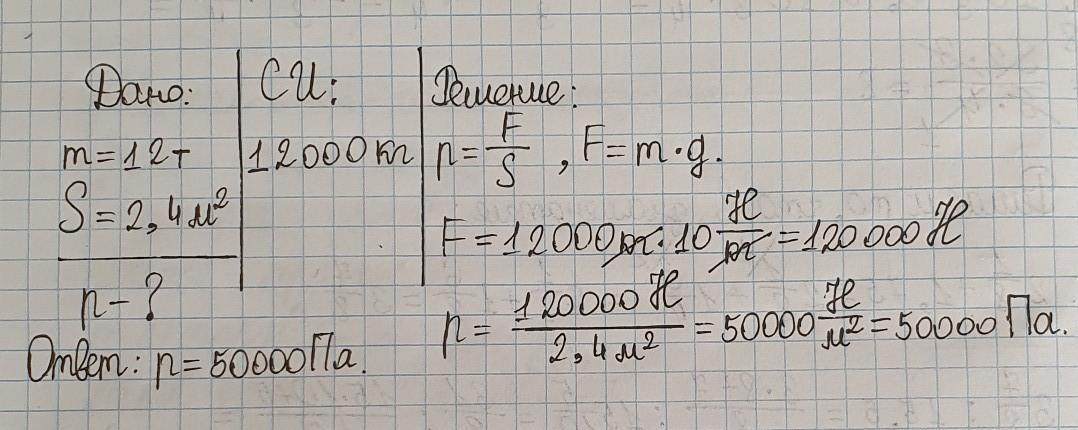 Дано:
m=12т
S=2,4м²
p-?
СИ:
12000кг
Решение:
p=F/S, F=m·g.
F=12000кг·10 Н/кг=120000Н
p=120000Н/2,4м²=50000Н/м²=50000Па.
Ответ: p=50000Па.